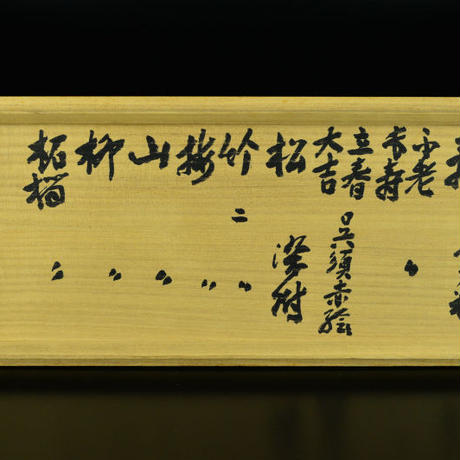 不老
長寿 〃
立春
大吉 呉須赤絵
松 染附
竹 二 〃
梅 〃
山 〃
柳 〃
柘榴 〃